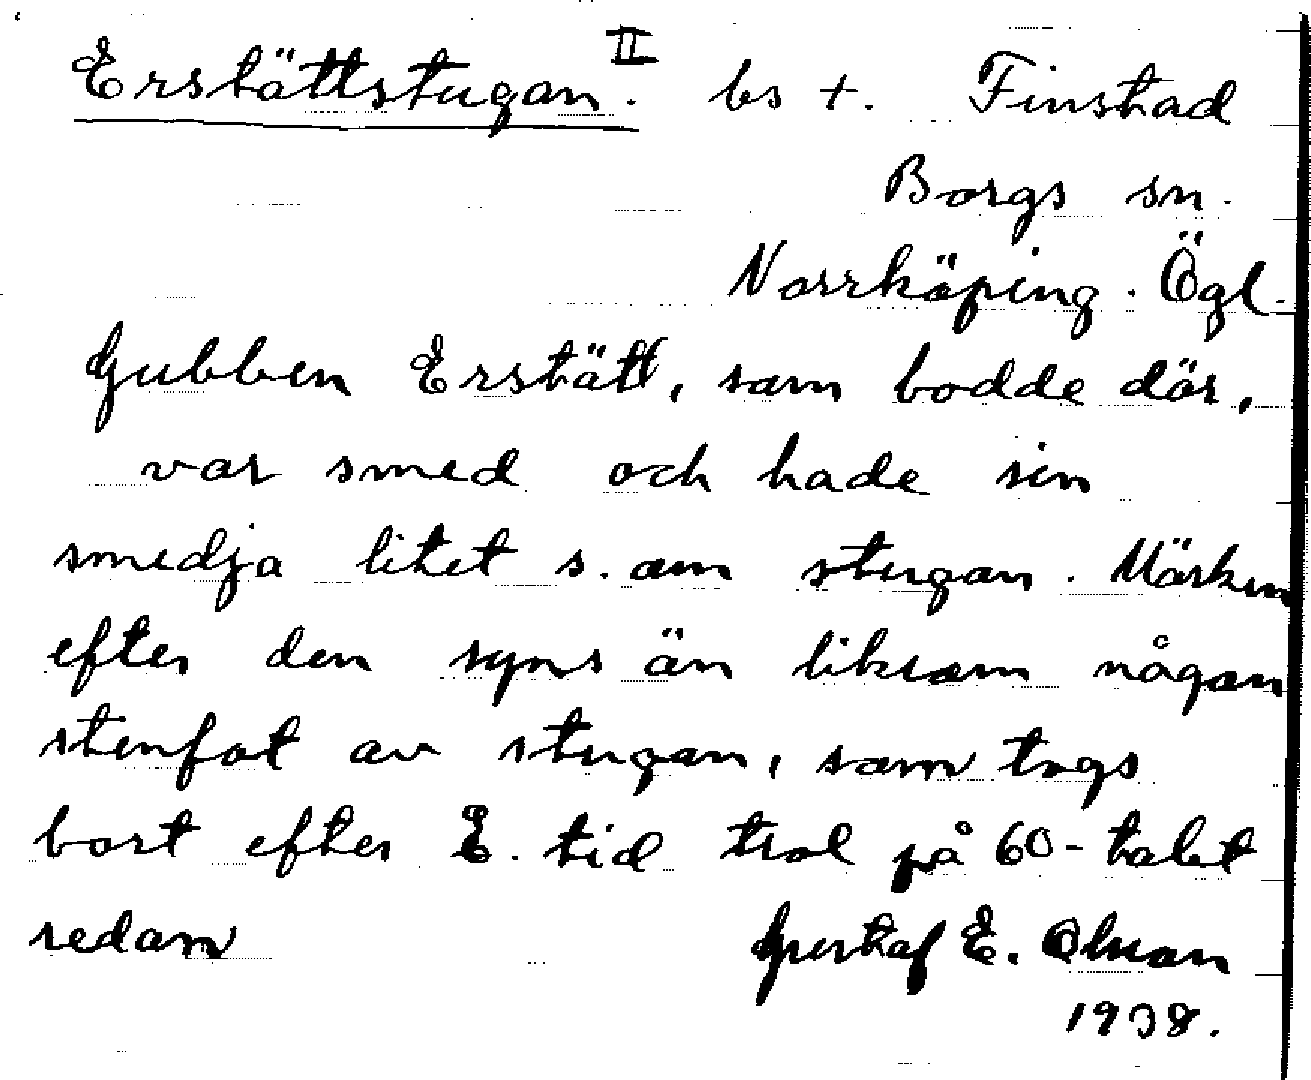 Erstättstugan. II bs +. Finstad
Borgs sn.
Norrköping. Ögl.
Gubben Erstätt, som bodde där,
var smed och hade sin
smedja litet s. om stugan. Märken
efter den syns än liksom någon
stenfot av stugan, som togs
bort efter E. tid trol på 60-talet
redan Gustaf E. Olson
1938.